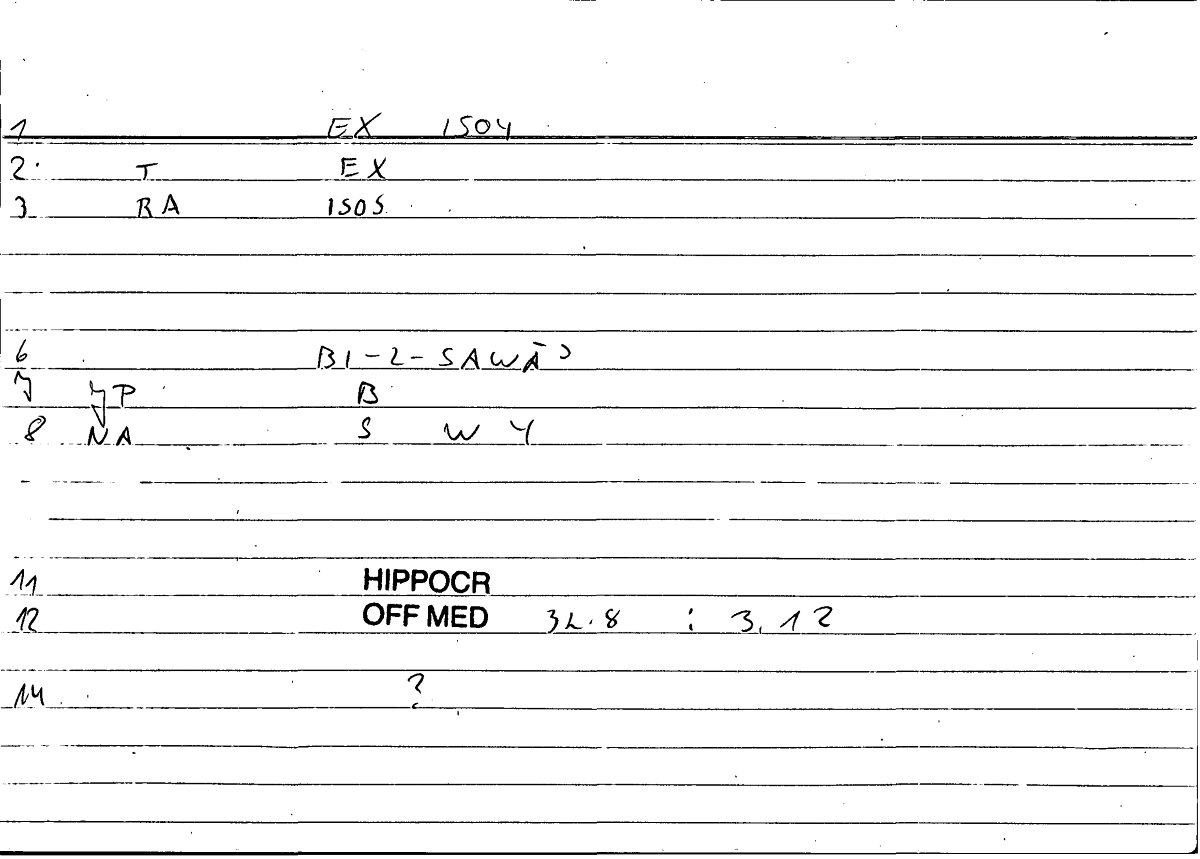 1 EX ISOY
2 T EX
3 RA ISOS
6 BI-2-SAWĀ
7 JP B
8 NA S W Y
11 HIPPOCR
12 OFF MED 3L.8 : 3.12
14 ?